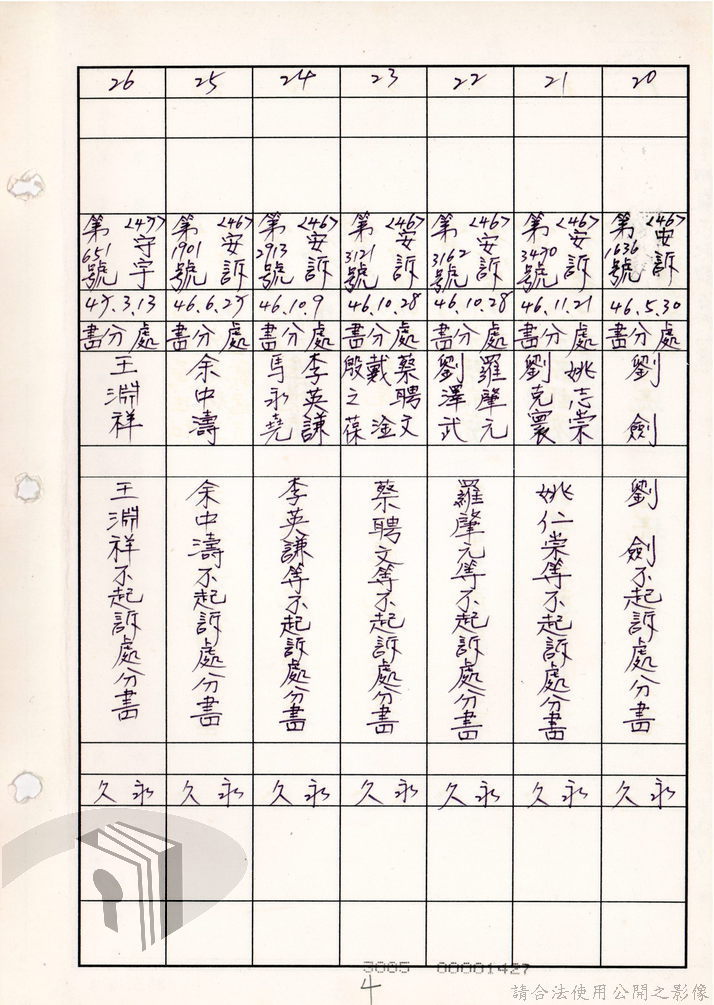 20
<46>安訴
第1636號
46.5.30
處分書
劉劍
劉劍不起訴處分書
永久
21
<46>安訴
第3490號
46.11.21
處分書
姚志崇
劉克寰
姚仁崇等不起訴處分書
永久
22
<46>安訴
第3162號
46.10.28
處分書
羅肇元
劉澤武
羅肇元等不起訴處分書
永久
23
<46>安訴
第3121號
46.10.28
處分書
蔡聘文
戴淦
殷之葆
蔡聘文等不起訴處分書
永久
24
<46>安訴
第2913號
46.10.9
處分書
李英謙
馬永堯
李英謙等不起訴處分書
永久
25
<46>安訴
第1901號
46.6.25
處分書
余中濤
余中濤不起訴處分書
永久
26
守宇
第651號
處分書
王淵祥
王淵祥不起訴處分書
永久
3005 00001427
4
請合法使用公開之影像